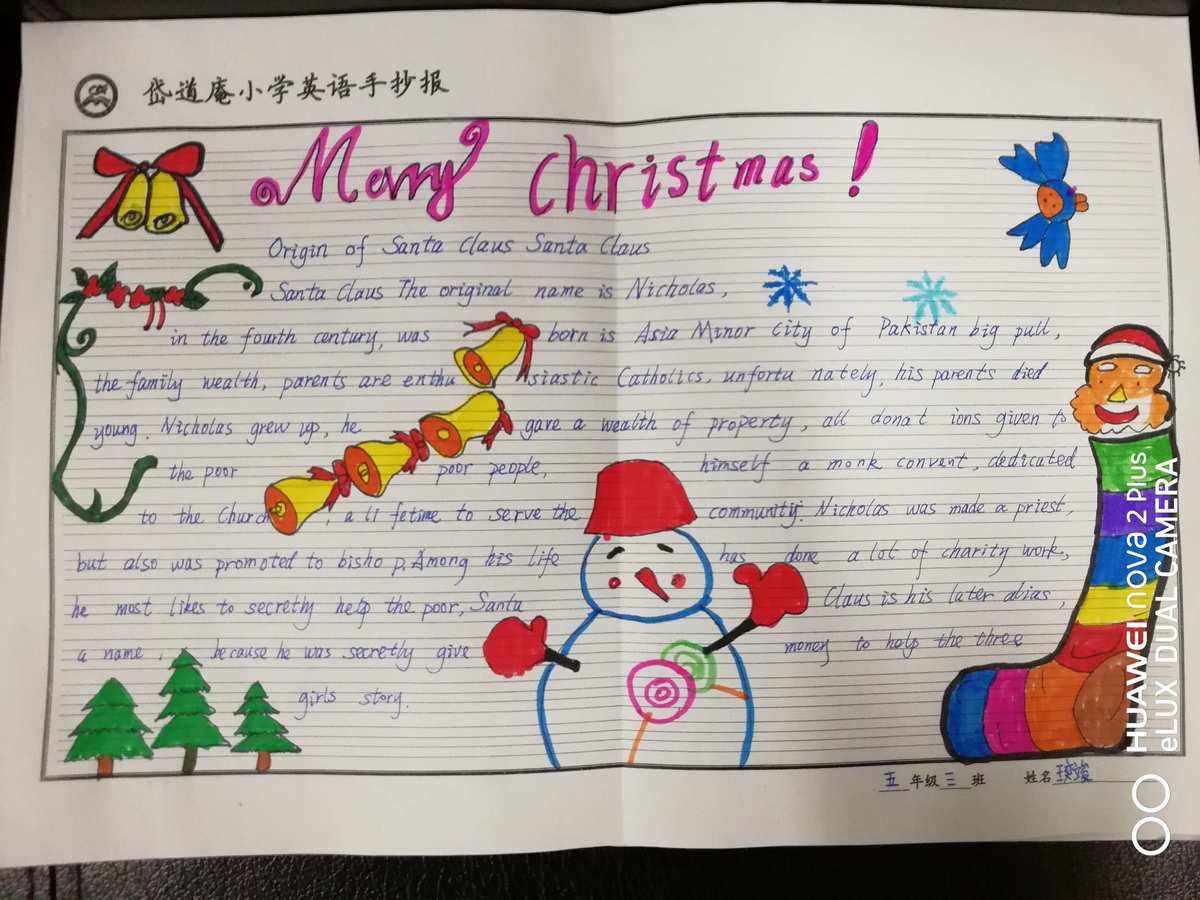 岱道庵小学英语手抄报
Merry christmas!
Origin of Santa Claus Santa Claus
Santa Claus The original name is Nicholas,
in the fourth century, was born is Asia Minor city of Pakistan big pull,
the family wealth, parents are enthu siastic Catholics, unfortu nately, his parents died
young. Nicholas grew up, he gave a wealth of property, all donat ions given to
the poor poor people, himself a monk convent, dedicated
to the Church, a li fetime to serve the community. Nicholas was made a priest,
but also was promoted to bisho p. Among his life has done a lot of charity work,
he most likes to secretly help the poor, Santa Claus is his later alias,
a name. because he was secretly give money to help the three
girls story.
五年级三班 姓名
HUAWEI nova 2 Plus
eLUX DUAL CAMERA